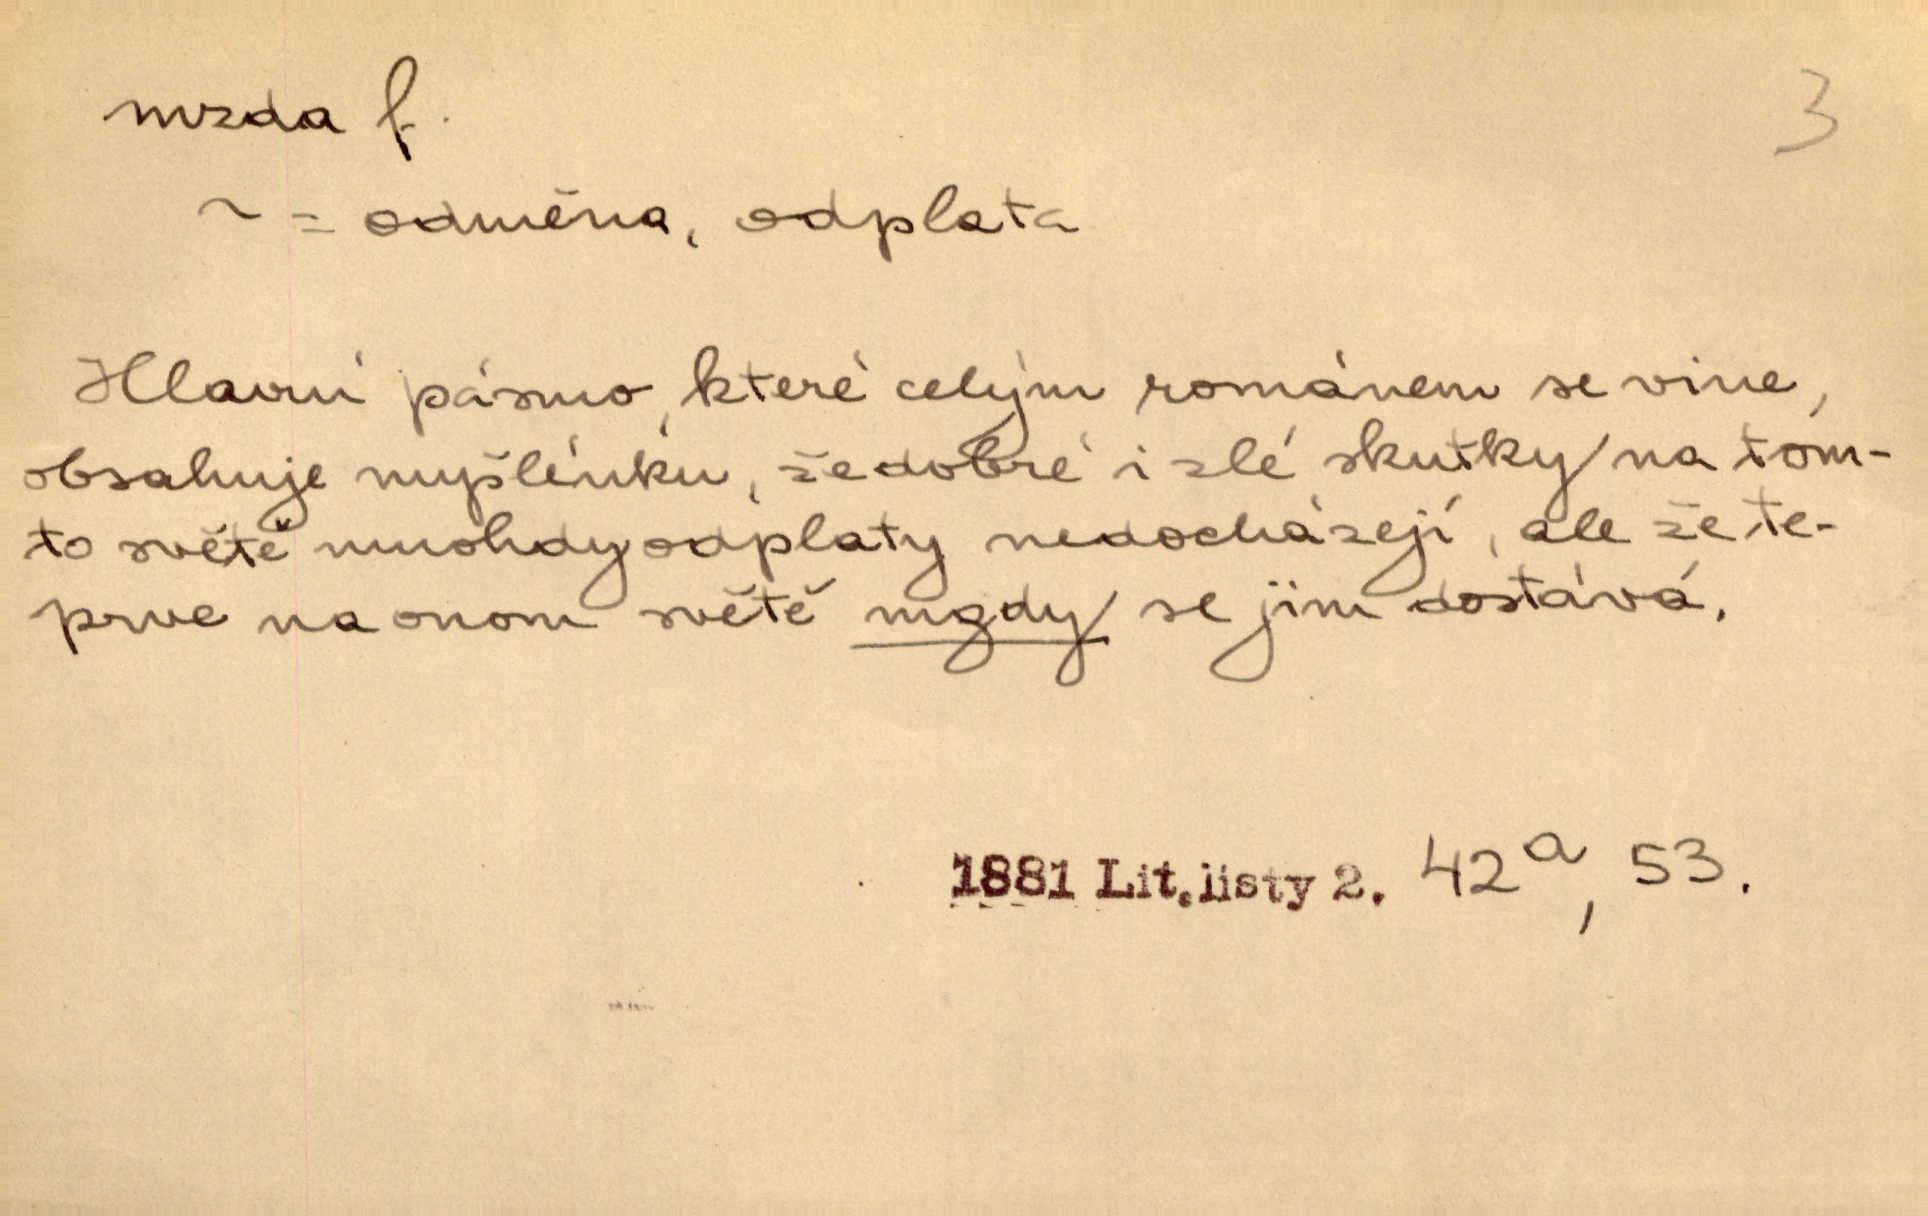 mzda f.
3
~ = odměna, odplata
Hlavní pásmo, které celým románem se vine,
obsahuje myšlénku, že dobré i zlé skutky na tom-
to světě mnohdy odplaty nedocházejí, ale že te-
prve na onom světě mzdy se jim dostává.
1881 Lit. listy 2. 42a, 53.